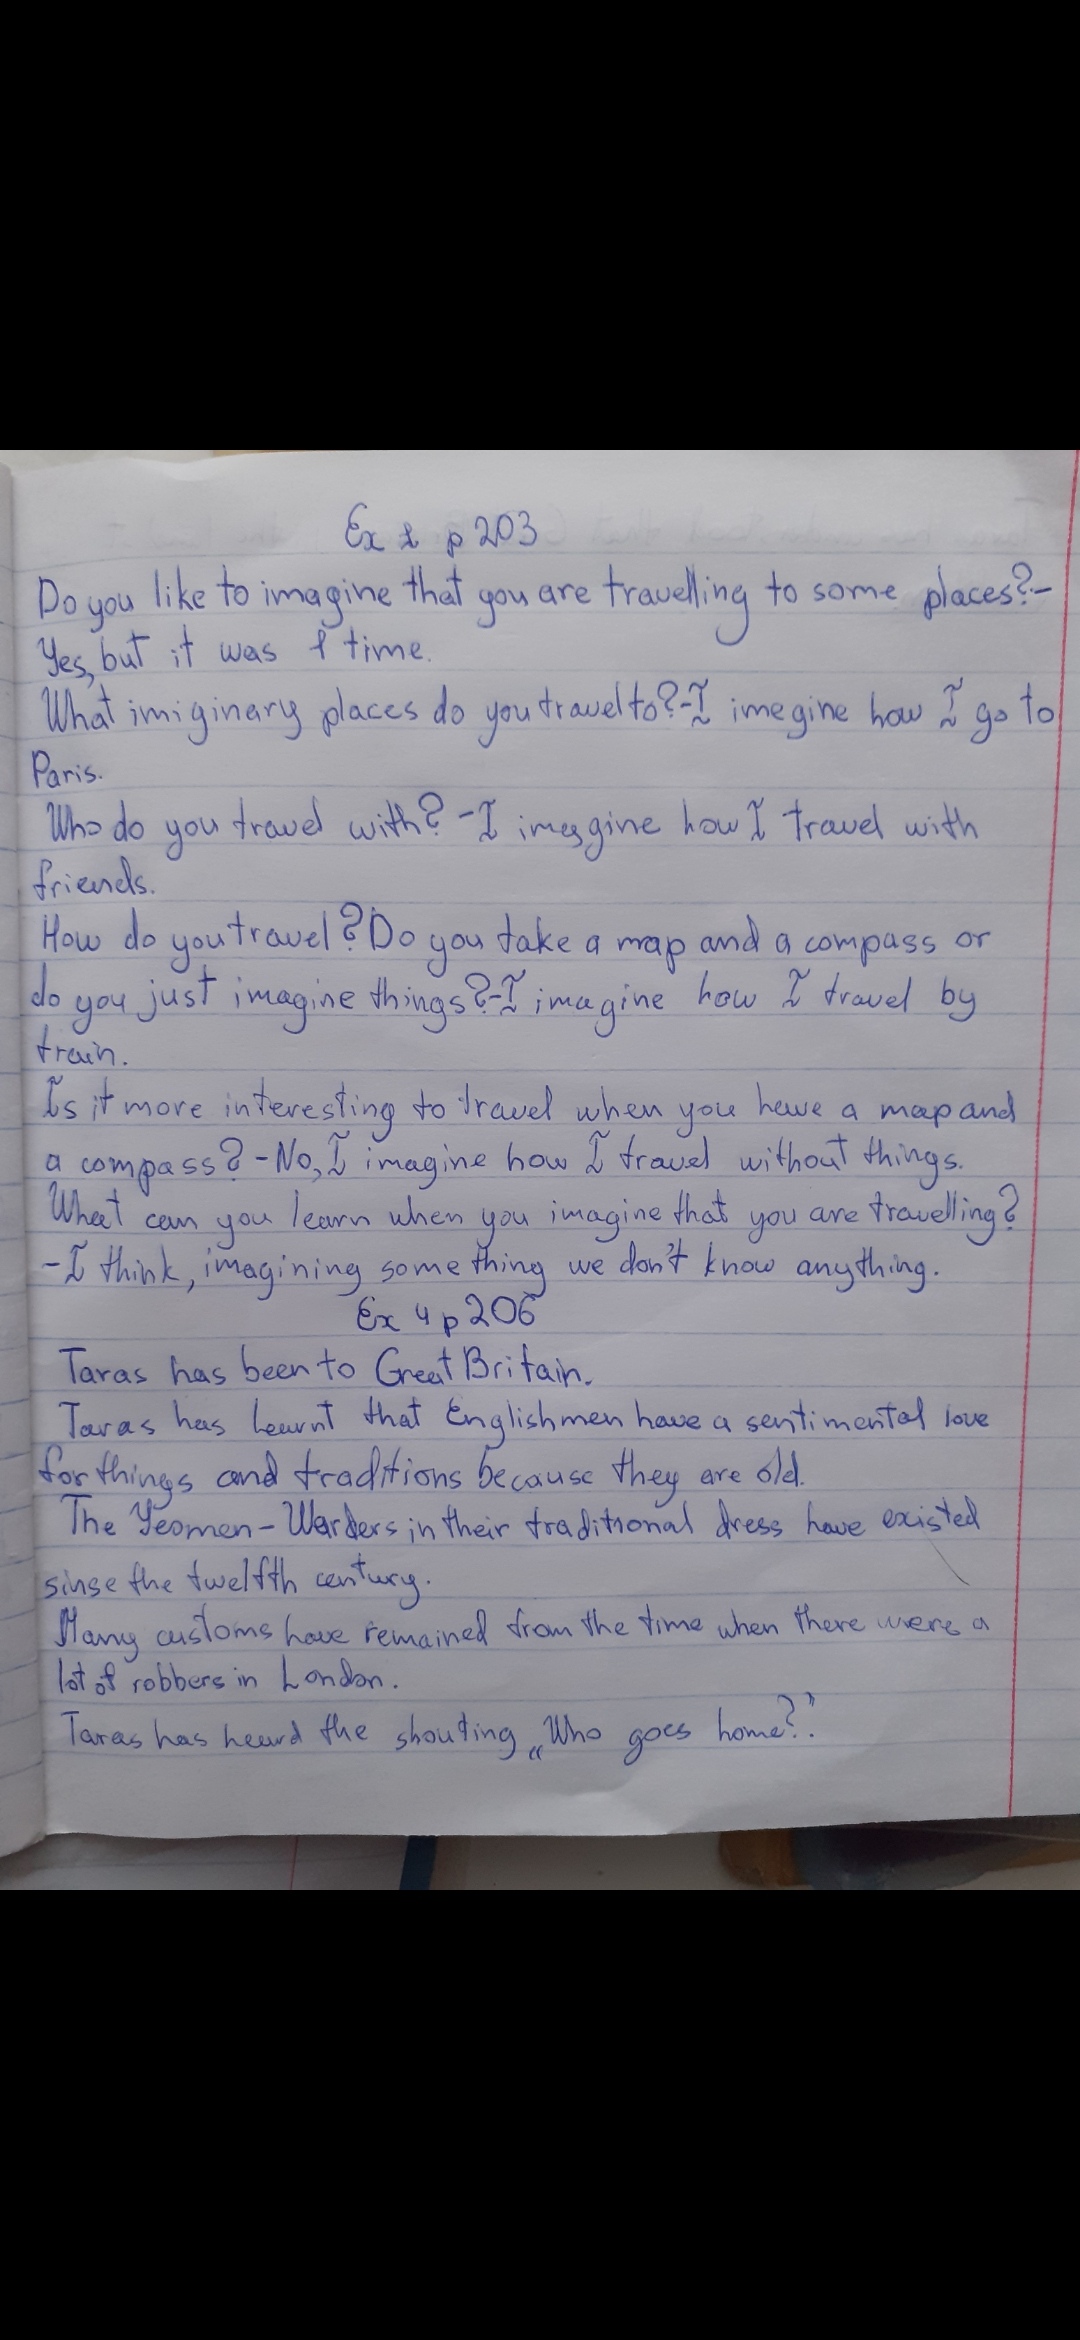 Ex 1 p 203
Do you like to imagine that you are travelling to some places?-
Yes, but it was 1 time.
What imiginary places do you travel to?-I imegine how I go to
Paris.
Who do you travel with? -I imegine how I travel with
friends.
How do you travel? Do you take a map and a compass or
do you just imagine things?-I imagine how I travel by
train.
Is it more interesting to travel when you have a map and
a compass? -No, I imagine how I travel without things.
What can you learn when you imagine that you are travelling?
-I think, imagining something we don't know anything.
Ex 4 p 206
Taras has been to Great Britain.
Taras has learnt that Englishmen have a sentimental love
for things and traditions because they are old.
The Yeomen-Warders in their traditional dress have existed
sinse the twelfth century.
Many customs have remained from the time when there were a
lot of robbers in London.
Taras has heard the shouting „Who goes home?".